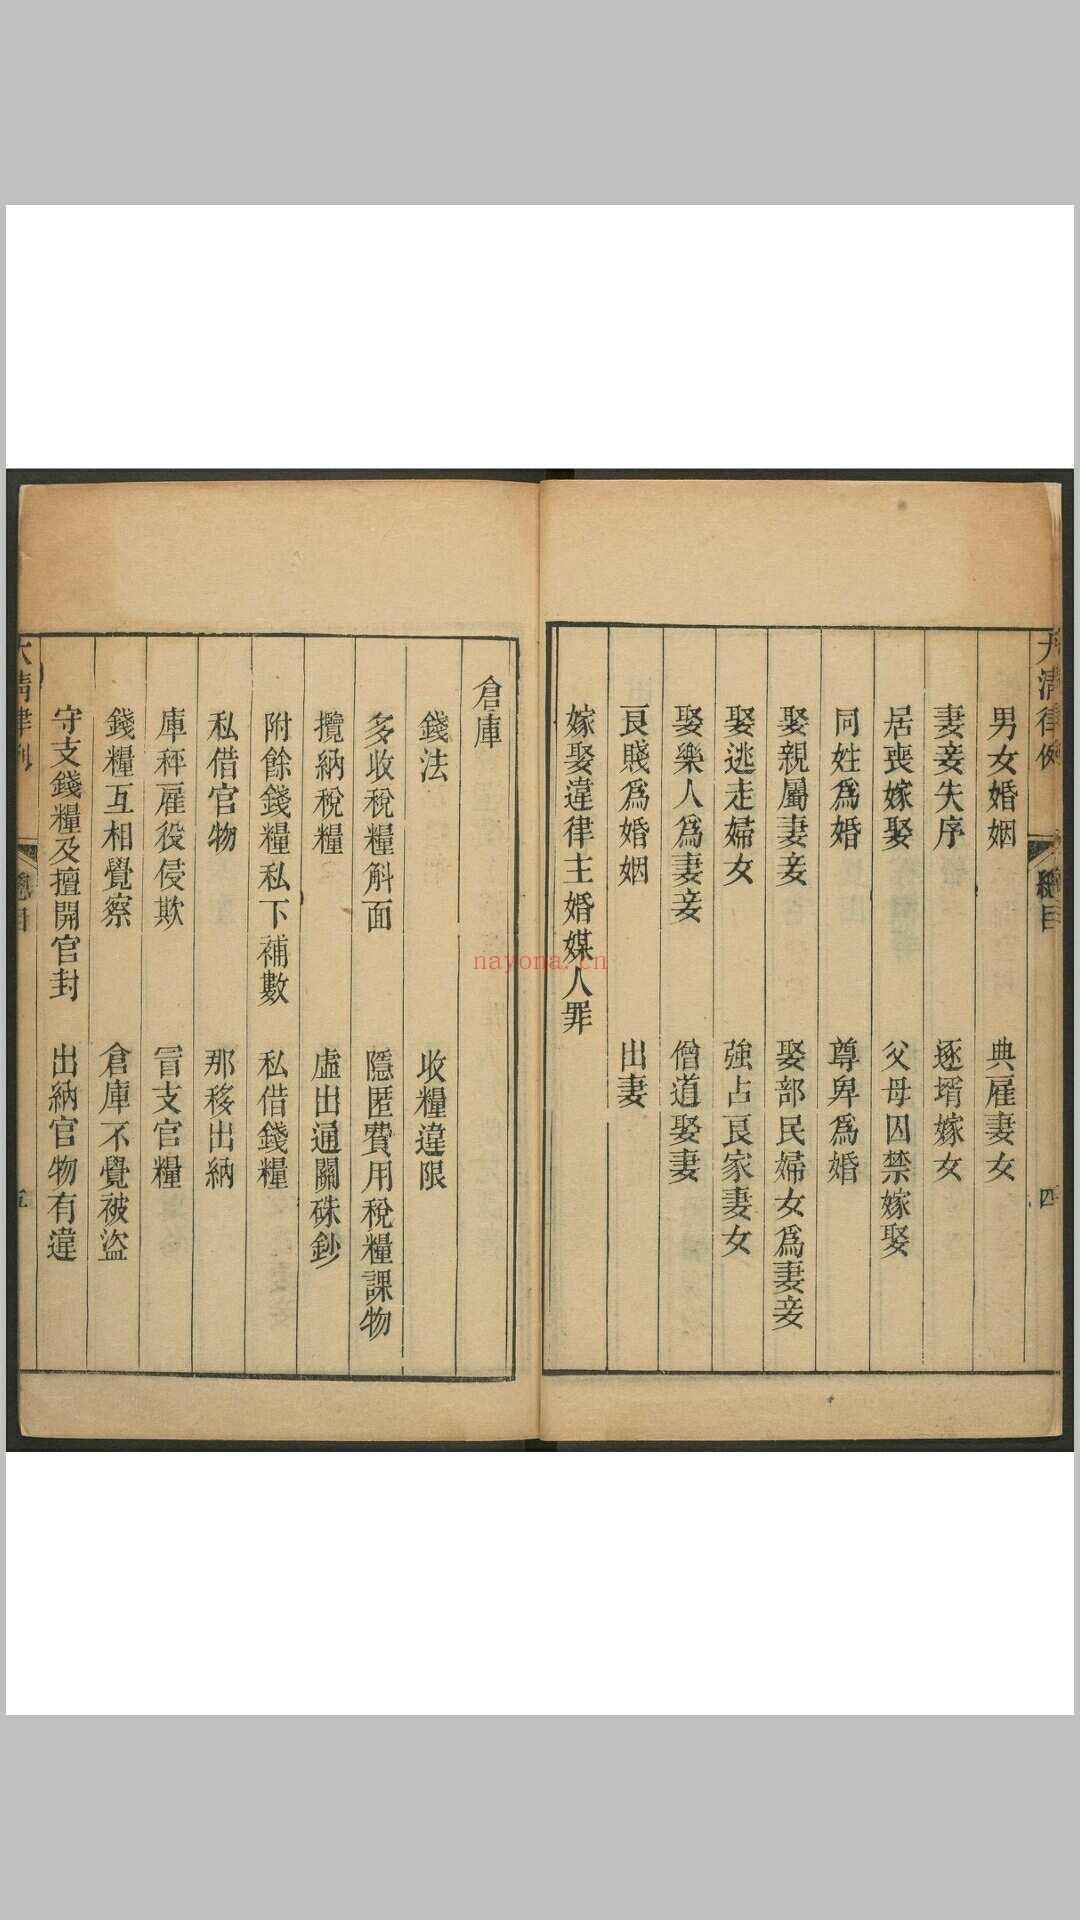 大清律例
總目
四
男女婚姻
典雇妻女
妻妾失序
逐壻嫁女
居喪嫁娶
父母囚禁嫁娶
同姓爲婚
尊卑爲婚
娶親屬妻妾
娶部民婦女爲妻妾
娶逃走婦女
強占良家妻女
娶樂人爲妻妾
僧道娶妻
良賤爲婚姻
出妻
嫁娶違律主婚媒人罪
倉庫
錢法
收糧違限
多收稅糧斛面
隱匿費用稅糧課物
攬納稅糧
虛出通關硃鈔
附餘錢糧私下補數
私借錢糧
私借官物
那移出納
庫秤雇役侵欺
冒支官糧
錢糧互相覺察
倉庫不覺被盜
守支錢糧及擅開官封
出納官物有違
大清律例
總目
五
nayona.cn